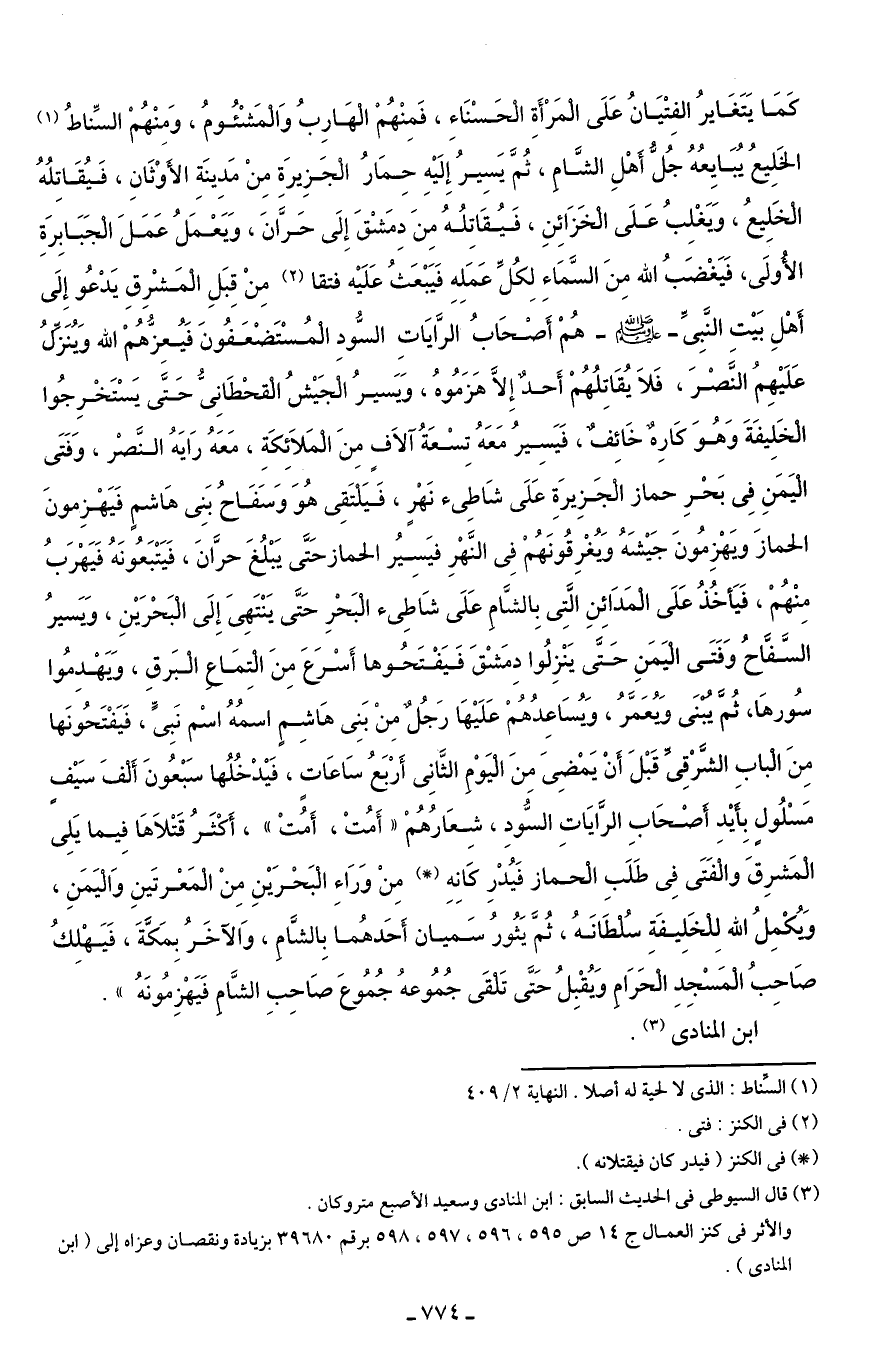 كَمَا يَتَغَايرُ الفِتْيَانُ عَلَى المَرْأَةِ الحَسْنَاءِ ، فَمِنْهُمْ الهَارِبُ وَالمَشْئُومُ ، وَمِنْهُمْ السِّنَاطُ (١)
الخَلِيعُ يُبَايعُهُ جُلُّ أَهْلِ الشَّامِ ، ثُمَّ يَسِيرُ إِلَيْهِ حِمَارُ الجَزِيرَةِ مِنْ مَدِينَةِ الأَوْثَانِ ، فَيُقَاتِلُهُ
الْخَلِيعُ ، وَيَغْلِبُ عَلَى الْخَزَائِنِ ، فَيُقَاتِلُهُ مِنَ دِمَشْقَ إِلَى حَرَّانَ ، وَيَعْمَلُ عَمَلَ الْجَبَابِرَةِ
الأُولَى، فَيَغْضَبُ الله مِنَ السَّمَاءِ لِكُلِّ عَمَلِهِ فَيَبْعَثُ عَلَيْهِ فتقا (٢) مِنْ قِبَلِ الْمَشْرِقِ يَدْعُو إِلَى
أَهْلِ بَيْتِ النَّبِىِّ - ﷺ - هُمْ أَصْحَابُ الرَّايَاتِ السُّودِ المُسْتَضْعَفُونَ فَيُعِزُّهُمْ الله وَيُنَزِّلُ
عَلَيْهِمُ النَّصْرَ ، فَلاَ يُقَاتِلُهُمْ أَحَدٌ إِلاَّ هَزَمُوهُ ، وَيَسِيرُ الْجَيْشُ القَحْطَانِىُّ حَتَّى يَسْتَخْرِجُوا
الْخَلِيفَةَ وَهُوَ كَارِهٌ خَائفٌ ، فَيَسِيرُ مَعَهُ تِسْعَةُ آلاَفٍ مِنَ المَلاَئِكَةِ ، مَعَهُ رَايَةُ النَّصْرِ ، وَفَتَى
اليَمَنِ فِى بَحْرِ حماز الجَزِيرَةِ عَلَى شَاطِىءِ نَهْرٍ ، فَيَلْتَقِى هُوَ وَسَفَاحُ بَنِى هَاشِمٍ فَيَهْزِمونَ
الحمازَ ويَهْزِمُونَ جَيْشَهُ وَيُغْرِقُونَهُمْ فِى النَّهْرِ فيَسِيرُ الحماز حَتَّى يَبْلُغَ حرَّانَ ، فَيَتَّبِعُونَهُ فَيَهْرَبُ
مِنْهُمْ ، فَيَأخُذُ عَلَى المَدَائِنِ الَّتِى بِالشَّامِ عَلَى شَاطِىءِ البَحْرِ حَتَّى يَنْتَهِىَ إِلَى الْبَحْرَيْنِ ، وَيَسيرُ
السَّفَّاحُ وَفَتَى اليَمَنِ حَتَّى يَنْزِلُوا دِمَشْقَ فَيَفْتَحُوها أَسْرَعَ مِنَ التِمَاعِ البَرقِ ، وَيَهْدِمُوا
سُورهَا، ثُمَّ يُبْنَى وَيُعَمَّرُ ، وَيُسَاعِدُهُمْ عَلَيْهَا رَجُلٌ مِنْ بَنِى هَاشِمٍ اسمُهُ اسْمُ نَبِىٍّ ، فَيَفْتَحُونَها
مِنَ الْبابِ الشَّرْقِىِّ قَبْلَ أَنْ يَمْضِىَ مِنَ اليَوْمِ الثَّانِى أَرْبَعُ سَاعَاتٍ ، فَيَدْخُلُها سَبْعُونَ أَلْفَ سَيْفٍ
مَسْلُولٍ بِأَيْدِ أَصْحَابِ الرَّايَاتِ السُّودِ ، شِعَارُهُمْ « أَمُتْ ، أَمُتْ » ، أَكْثَرُ قَتْلاَهَا فِيما يَلِى
المَشرِقَ وَالْفَتَى فِى طَلَبِ الحماز فَيُدْرِ كَانِهِ (*) مِنْ وَرَاءِ الْبَحْرَيْنِ مِنْ المَعْرتَينِ وَاليَمَنِ ،
وَيُكْمِلُ الله لِلْخَلِيفَةِ سُلْطَانَهُ ، ثُمَّ يَثُورُ سَمِيان أَحَدهُما بِالشَّامِ ، وَالآخَرُ بِمكَّةَ ، فَيَهْلِكُ
صَاحِبُ الْمَسْجِدِ الْحَرَامِ وَيُقْبِلُ حَتَّى تَلْقَى جُمُوعهُ جُمُوعَ صَاحِبِ الشَّامِ فَيَهْزِمُونَهُ » .
ابن المنادى (٣) .
(١) السِّناط : الذى لا لحية له أصلا . النهاية ٢/ ٤٠٩
(٢) فى الكنز : فتى .
(*) فى الكنز ( فيدر كان فيقتلانه ).
(٣) قال السيوطى فى الحديث السابق : ابن المنادى وسعيد الأصبع متروكان .
والأثر فى كنز العمال ج ١٤ ص ٥٩٥ ، ٥٩٦ ، ٥٩٧ ، ٥٩٨ برقم ٣٩٦٨٠ بزيادة ونقصان وعزاه إلى ( ابن
المنادى ) .
- ٧٧٤ -